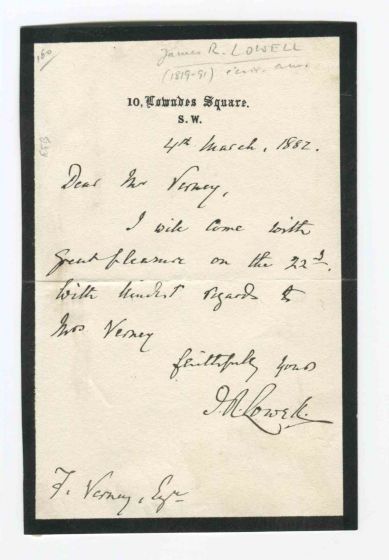 160
James R. LOWELL
(1819-91)
10, Lowndes Square.
S. W.
4th March, 1882.
Dear Mr Verney,
I will come with
great pleasure on the 22d.
With kindest regards to
Mrs Verney
faithfully yours
J. R. Lowell.
F. Verney, Esqre